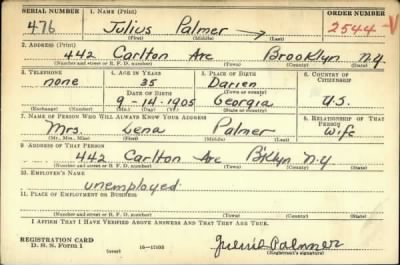 SERIAL NUMBER 1. NAME (Print) ORDER NUMBER
476 Julius Palmer 2544-V
(First) (Middle) (Last)
2. ADDRESS (Print)
442 Carlton Ave Brooklyn N.Y.
(Number and street or R. F. D. number) (Town) (County) (State)
3. TELEPHONE 4. AGE IN YEARS 5. PLACE OF BIRTH 6. COUNTRY OF CITIZENSHIP
none 35 Darien
DATE OF BIRTH (Town or county)
9-14-1905 Georgia U.S.
(Exchange) (Number) (Mo.) (Day) (Yr.) (State or country)
7. NAME OF PERSON WHO WILL ALWAYS KNOW YOUR ADDRESS 8. RELATIONSHIP OF THAT PERSON
Mrs. Lena Palmer Wife
(Mr., Mrs., Miss) (First) (Middle) (Last)
9. ADDRESS OF THAT PERSON
442 Carlton Ave Bklyn N.Y
(Number and street or R. F. D. number) (Town) (County) (State)
10. EMPLOYER'S NAME
unemployed
11. PLACE OF EMPLOYMENT OR BUSINESS
(Number and street or R. F. D. number) (Town) (County) (State)
I AFFIRM THAT I HAVE VERIFIED ABOVE ANSWERS AND THAT THEY ARE TRUE.
REGISTRATION CARD
D. S. S. Form 1 (over) Julius Palmer
(Registrant's signature)